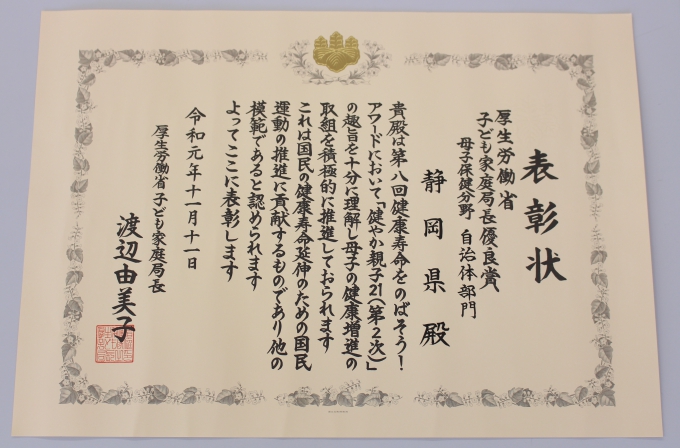 表彰状
厚生労働省
子ども家庭局長優良賞
母子保健分野 自治体部門
静岡県殿
貴殿は第八回健康寿命をのばそう！
アワードにおいて「健やか親子21(第2次)」
の趣旨を十分に理解し母子の健康増進の
取組を積極的に推進しておられます
これは国民の健康寿命延伸のための国民
運動の推進に貢献するものであり他の
模範であると認められます
よってここに表彰します
令和元年十一月十一日
厚生労働省子ども家庭局長
渡辺由美子